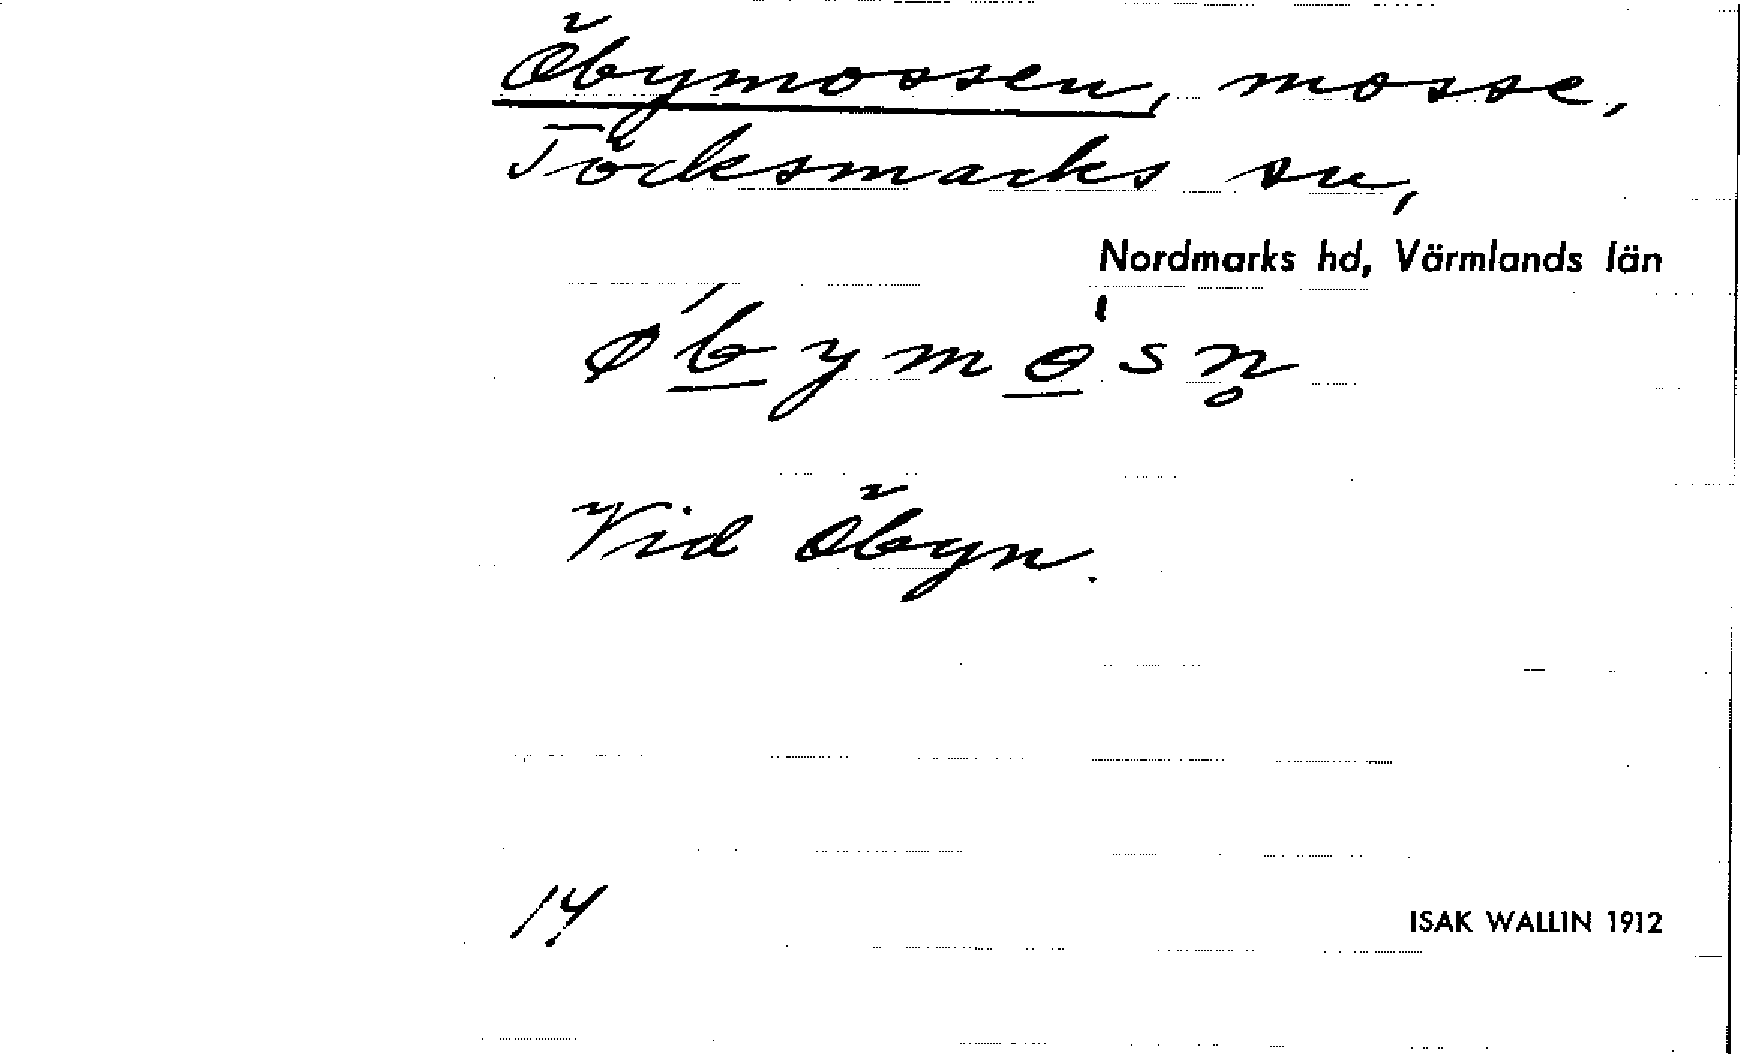 Öbymossen, mosse,
Töcksmarks sn,
Nordmarks hd, Värmlands län
ǿbymo̲̍sn̥
Vid Öbyn.
14
ISAK WALLIN 1912